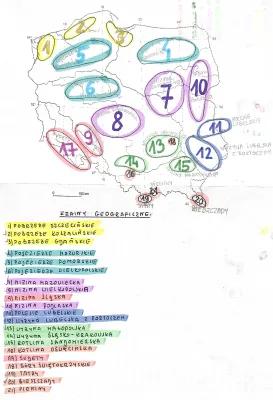 3
2
1
5
4
6
10
7
8
9
17
11
12
13
18
14
15
16
21
19
20
BIESZCZADY
KRAINY GEOGRAFICZNE:
1) POBRZEŻE SZCZECIŃSKIE
2) POBRZEŻE KOSZALIŃSKIE
3) POBRZEŻE GDAŃSKIE
4) POJEZIERZE MAZURSKIE
5) POJEZIERZE POMORSKIE
6) POJEZIERZE WIELKOPOLSKIE
7) NIZINA MAZOWIECKA
8) NIZINA WIELKOPOLSKA
9) NIZINA ŚLĄSKA
10) NIZINA PODLASKA
11) POLESIE LUBELSKIE
12) WYŻYNA LUBELSKA Z ROZTOCZEM
13) WYŻYNA MAŁOPOLSKA
14) WYŻYNA ŚLĄSKO-KRAKOWSKA
15) KOTLINA SANDOMIERSKA
16) KOTLINA OŚWIĘCIMSKA
17) SUDETY
18) GÓRY ŚWIĘTOKRZYSKIE
19) TATRY
20) BIESZCZADY
21) PIENINY